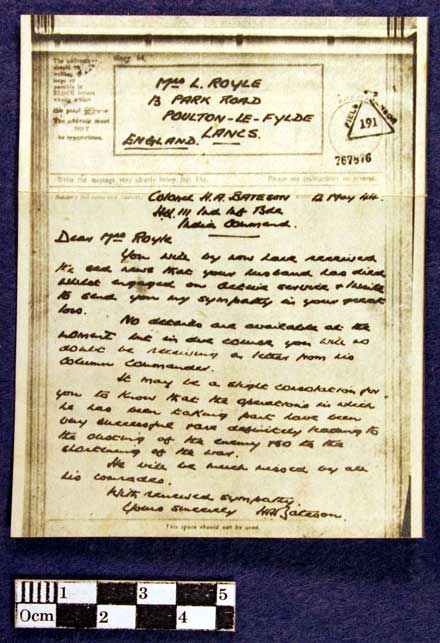 The address
should be
written in
large
BLOCK letters
The address must
NOT
be typewritten.
Mrs L. ROYLE
13 PARK ROAD
POULTON-LE-FYLDE
LANCS.
ENGLAND.
FIELD
191
767976
Write the message very clearly below this line.
Please see instructions on reverse.
Colonel H.A. BATESON 12 May 44.
HQ. 111 Ind Inf Bde
India Command.
Dear Mrs Royle
You will by now have received
the sad news that your husband has died
whilst engaged on active service & I write
to send you my sympathy in your great
loss.
No details are available at the
moment but in due course you will no
doubt be receiving a letter from his
Column Commander.
It may be a slight consolation for
you to know that the operations in which
he has been taking part have been
very successful and definitely leading to
the ousting of the enemy & so to the
shortening of the war.
He will be much missed by all
his comrades.
With renewed sympathy.
Yours sincerely HABateson.
This space should not be used.
0cm 1 2 3 4 5